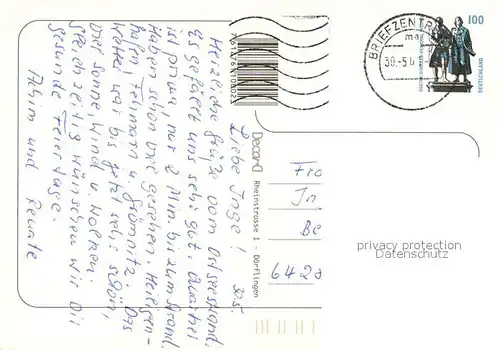 30.5.
Liebe Inge!
Herzliche Grüße vom Ostseestrand.
Es gefällt uns sehr gut. Quartier
ist prima, nur 2 Min. bis zum Strand.
Haben schon viel gesehen. Heiligen-
hafen, Fehmarn u. Grömitz. Das
Wetter war bis jetzt sehr schön,
viel Sonne, Wind u. Wolken.
Gleichzeitig wünschen wir Dir
gesunde Feiertage.
Achim und Renate
Decor
Rheinstrasse 1 - Dörflingen
BRIEFZENTR
ma
30.-5.
100
DEUTSCHLAND
Fra
In
Be
6428
privacy protection
Datenschutz